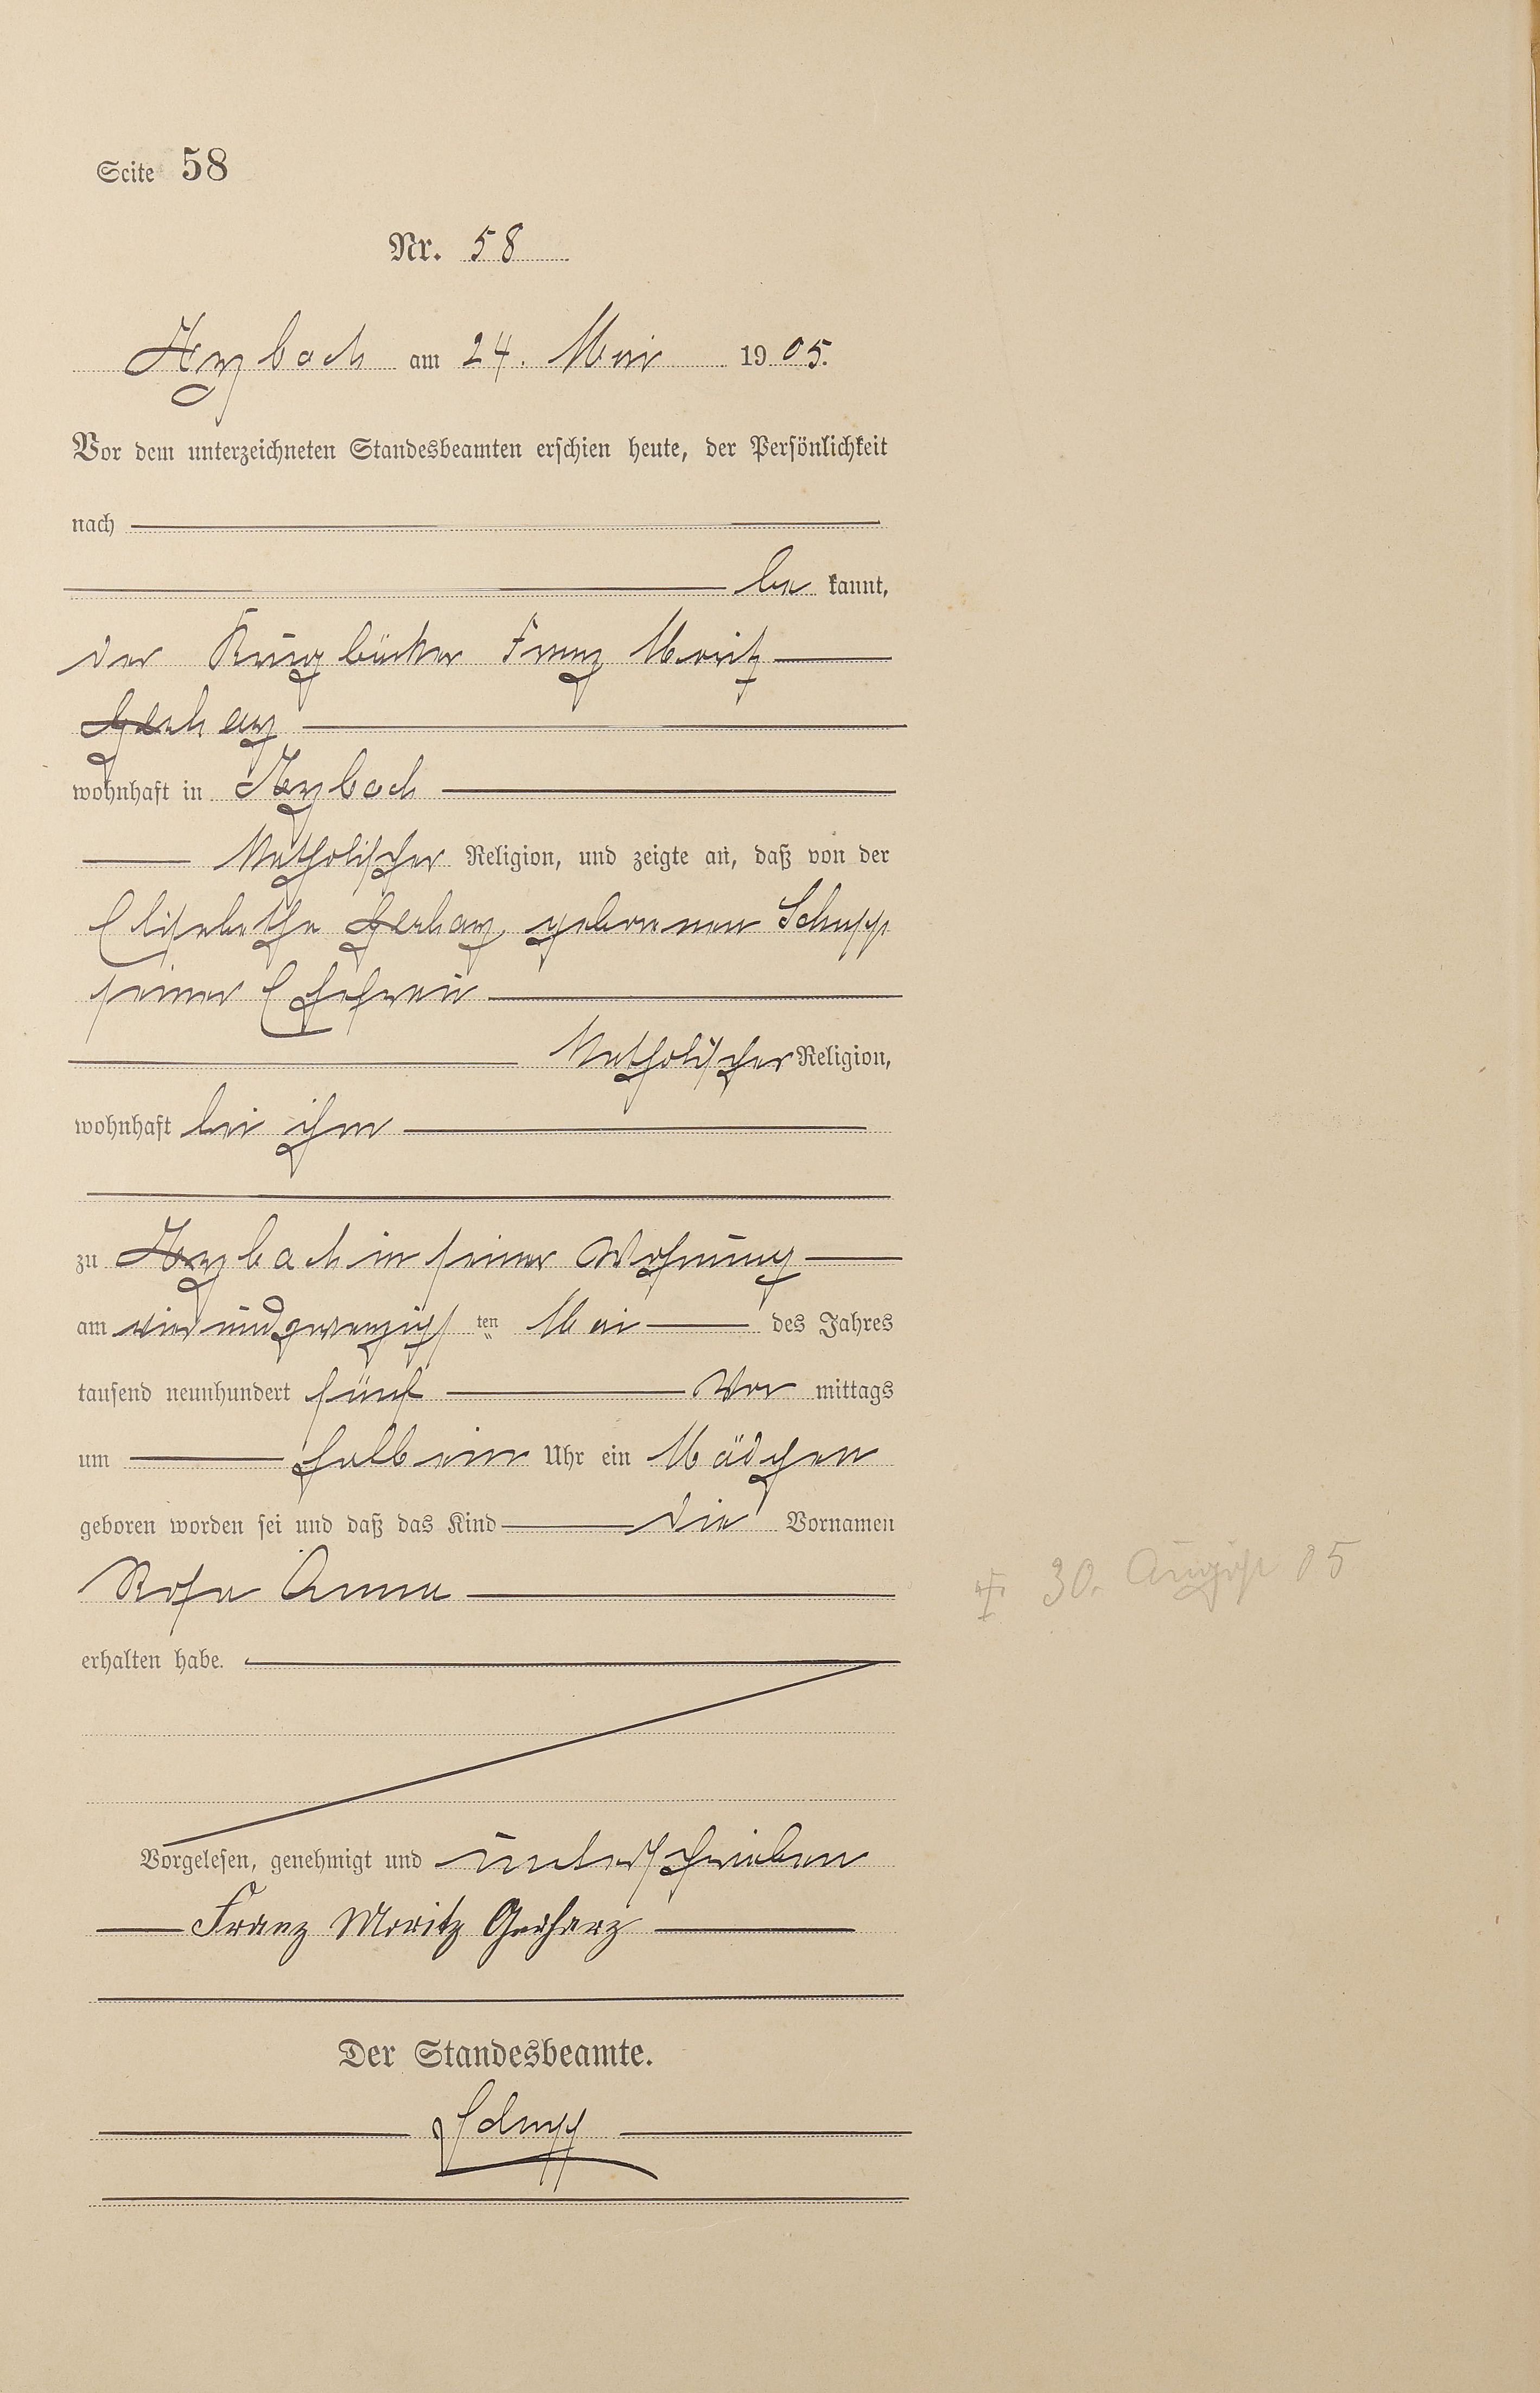 Seite 58
Nr. 58
am 24. Mai 1905.
Vor dem unterzeichneten Standesbeamten erschien heute, der Persönlichkeit
nach
be kannt,
der Krugbäcker Franz Moritz
Gerharz
wohnhaft in
Katholischer Religion, und zeigte an, daß von der
Elisabetha Gerharz geborenen Schupp
seiner Ehefrau
Katholischer Religion,
wohnhaft bei ihm
zu in seiner Wohnung
am vierundzwanzigsten Mai des Jahres
tausend neunhundert fünf Vor mittags
um halb ein Uhr ein Mädchen
geboren worden sei und daß das Kind die Vornamen
Rosa Anna
† 30. August 05
erhalten habe.
Vorgelesen, genehmigt und unterschrieben
Franz Moritz Gerharz
Der Standesbeamte.
Schupp